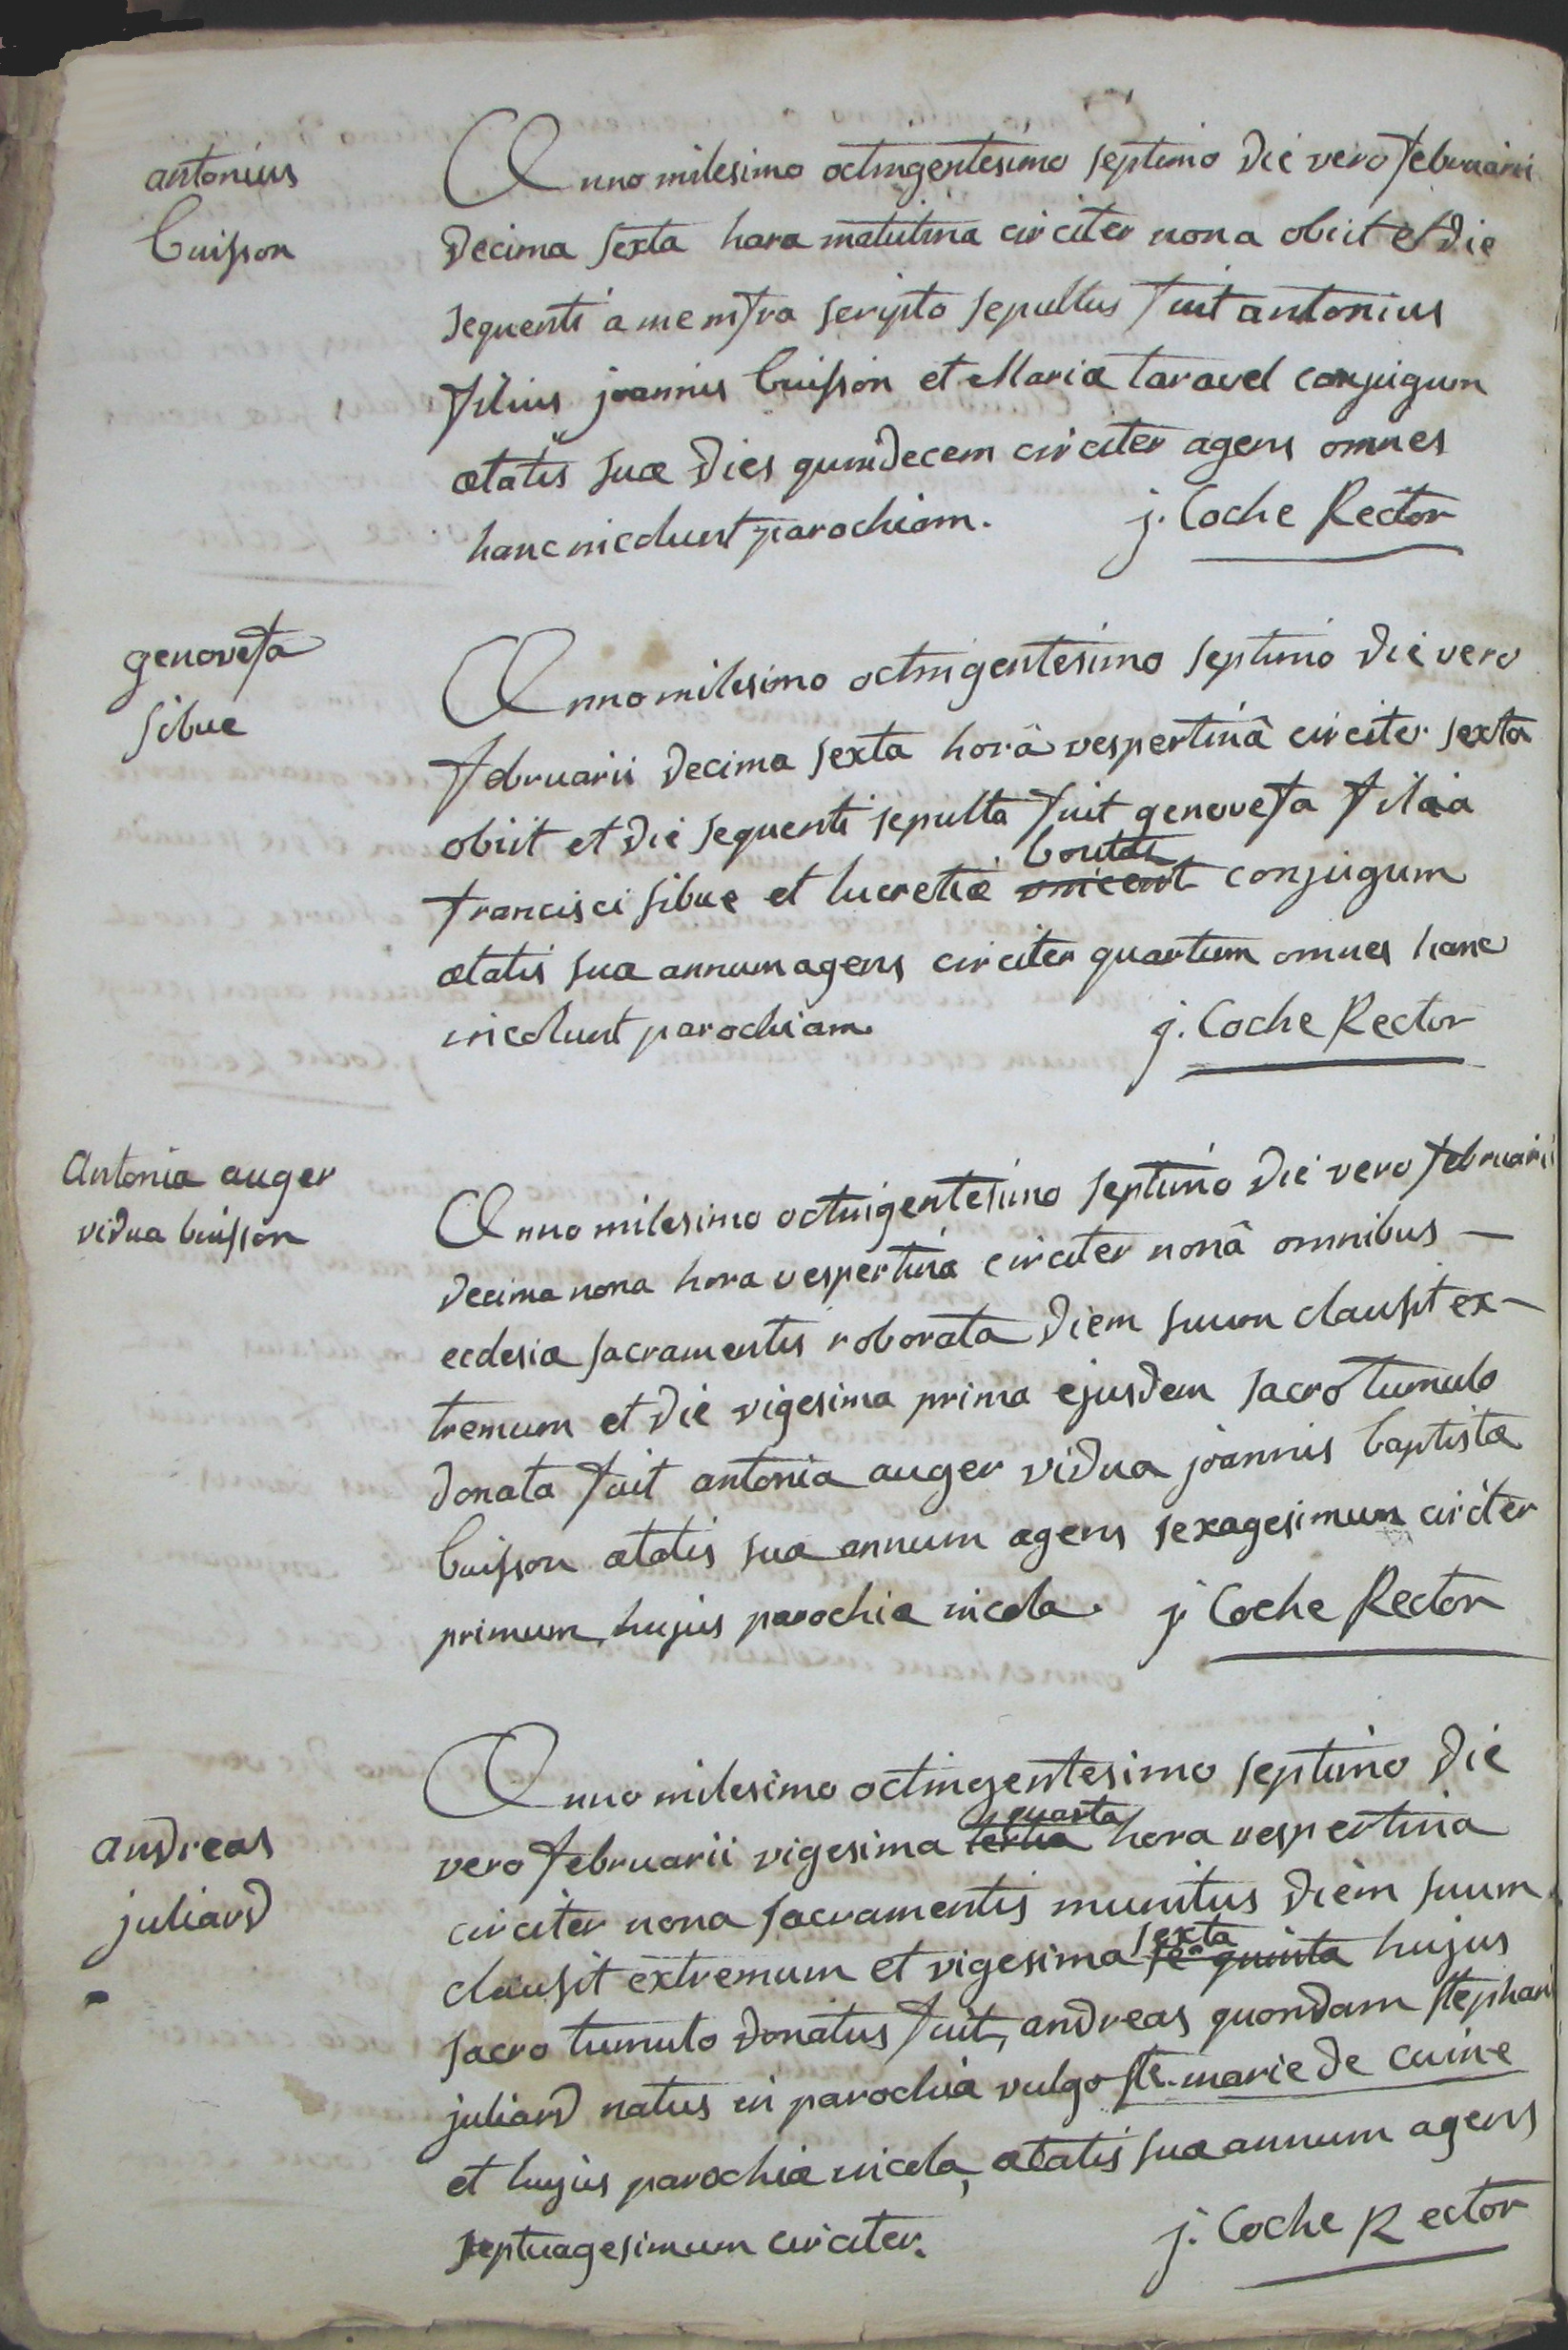 antonius
buisson
Anno milesimo octingentesimo septimo die vero februarii
decima sexta hora matutina circiter nona obiit et die
sequenti a me infra scripto sepultus fuit antonius
filius joannis buisson et Maria taravel conjugum
ætatis suæ dies quindecem circiter agens omnes
hanc incolunt parochiam. j. Coche Rector
genovefa
sibue
Anno milesimo octingentesimo septimo die vero
februarii decima sexta horâ vespertinâ circiter sexta
obiit et die sequenti sepulta fuit genovefa filia
francisci sibue et lucretiæ conjugum
ætatis suæ annum agens circiter quartum omnes hanc
incolunt parochiam. j. Coche Rector
Antonia auger
vidua buisson
Anno milesimo octingentesimo septimo die vero februarii
decima nona hora vespertina circiter nonâ omnibus —
ecclesiæ sacramentis roborata diem suum clausit ex-
tremum et die vigesima prima ejusdem sacro tumulo
donata fuit antonia auger vidua joannis baptistæ
buisson ætatis suæ annum agens sexagesimum circiter
primum, hujus parochiæ incola. j. Coche Rector
andreas
juliard
Anno milesimo octingentesimo septimo die
quarta
vero februarii vigesima tertia hora vespertina
circiter nona sacramentis munitus diem suum
sexta
clausit extremum et vigesima se quinta hujus
sacro tumulo donatus fuit, andreas quondam stephani
juliard natus in parochia vulgo ste. marie de cuine
et hujus parochiæ incola, ætatis suæ annum agens
septuagesimum circiter. j. Coche Rector